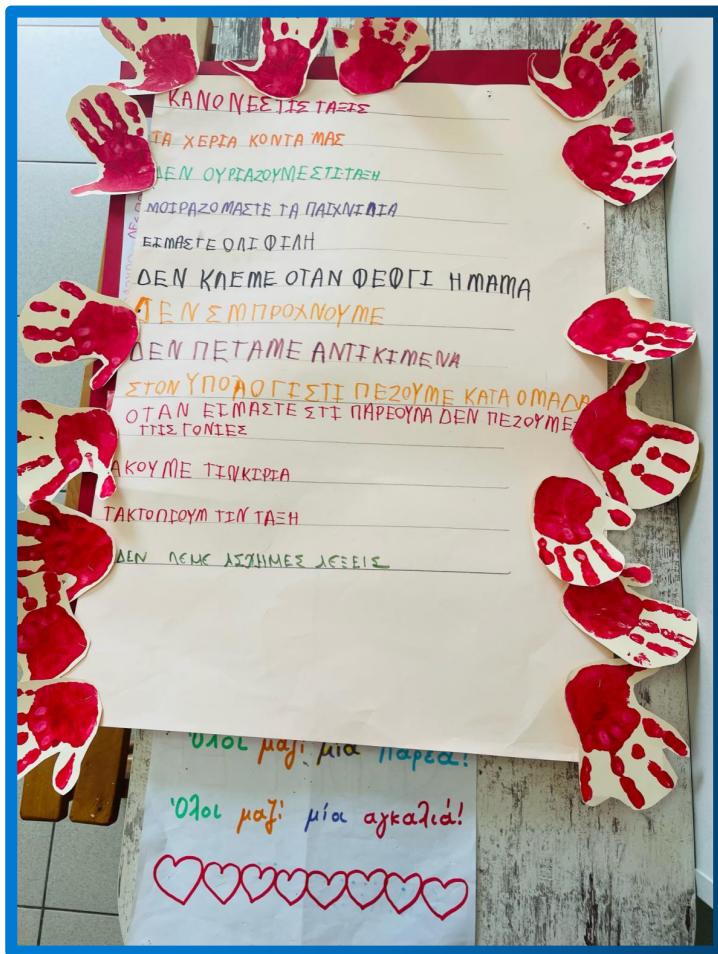 ΚΑΝΟΝΕΣ ΤΙΣ ΤΑΞΙΣ
ΤΑ ΧΕΡΙΑ ΚΟΝΤΑ ΜΑΣ
ΔΕΝ ΟΥΡΙΑΖΟΥΜΕ ΣΤΙ ΤΑΞΗ
ΜΟΙΡΑΖΟΜΑΣΤΕ ΤΑ ΠΑΙΧΝΙΔΙΑ
ΕΙΜΑΣΤΕ ΟΛΙ ΦΙΛΗ
ΔΕΝ ΚΛΕΜΕ ΟΤΑΝ ΦΕΦΓΙ Η ΜΑΜΑ
ΔΕΝ ΣΜΠΡΟΧΝΟΥΜΕ
ΔΕΝ ΠΕΤΑΜΕ ΑΝΤΙΚΙΜΕΝΑ
ΣΤΟΝ ΥΠΟΛΟΓΙΣΤΙ ΠΕΖΟΥΜΕ ΚΑΤΑ ΟΜΑΔΑ
ΟΤΑΝ ΕΙΜΑΣΤΕ ΣΤΙ ΠΑΡΕΟΥΛΑ ΔΕΝ ΠΕΖΟΥΜΕ
ΤΙΣ ΓΟΝΙΕΣ
ΑΚΟΥΜΕ ΤΙΝ ΚΙΡΙΑ
ΤΑΚΤΟΠΙΟΥΜ ΤΙΝ ΤΑΞΗ
ΔΕΝ ΛΕΜΕ ΑΣΧΗΜΕΣ ΛΕΞΕΙΣ
Όλοι μαζί μία παρέα!
Όλοι μαζί μία αγκαλιά!